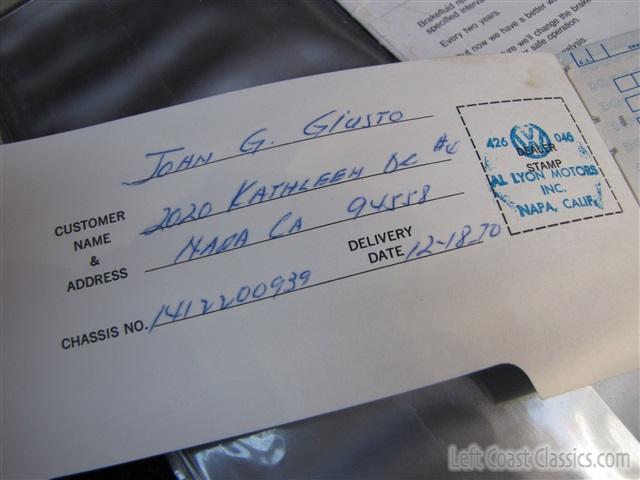 Brakefluid re
specified interv
Every two years.
nd now we have a better w
ure we'll change the brake
r safe operation.
alysis.
JOHN G. GIUSTO
CUSTOMER
NAME
&
ADDRESS
2020 KATHLEEN DR #4
NAPA CA 94558
DELIVERY
DATE 12-18-70
CHASSIS NO. 1412200939
426 046
DEALER
STAMP
AL LYON MOTORS
INC.
NAPA, CALIF.
Left Coast Classics.com